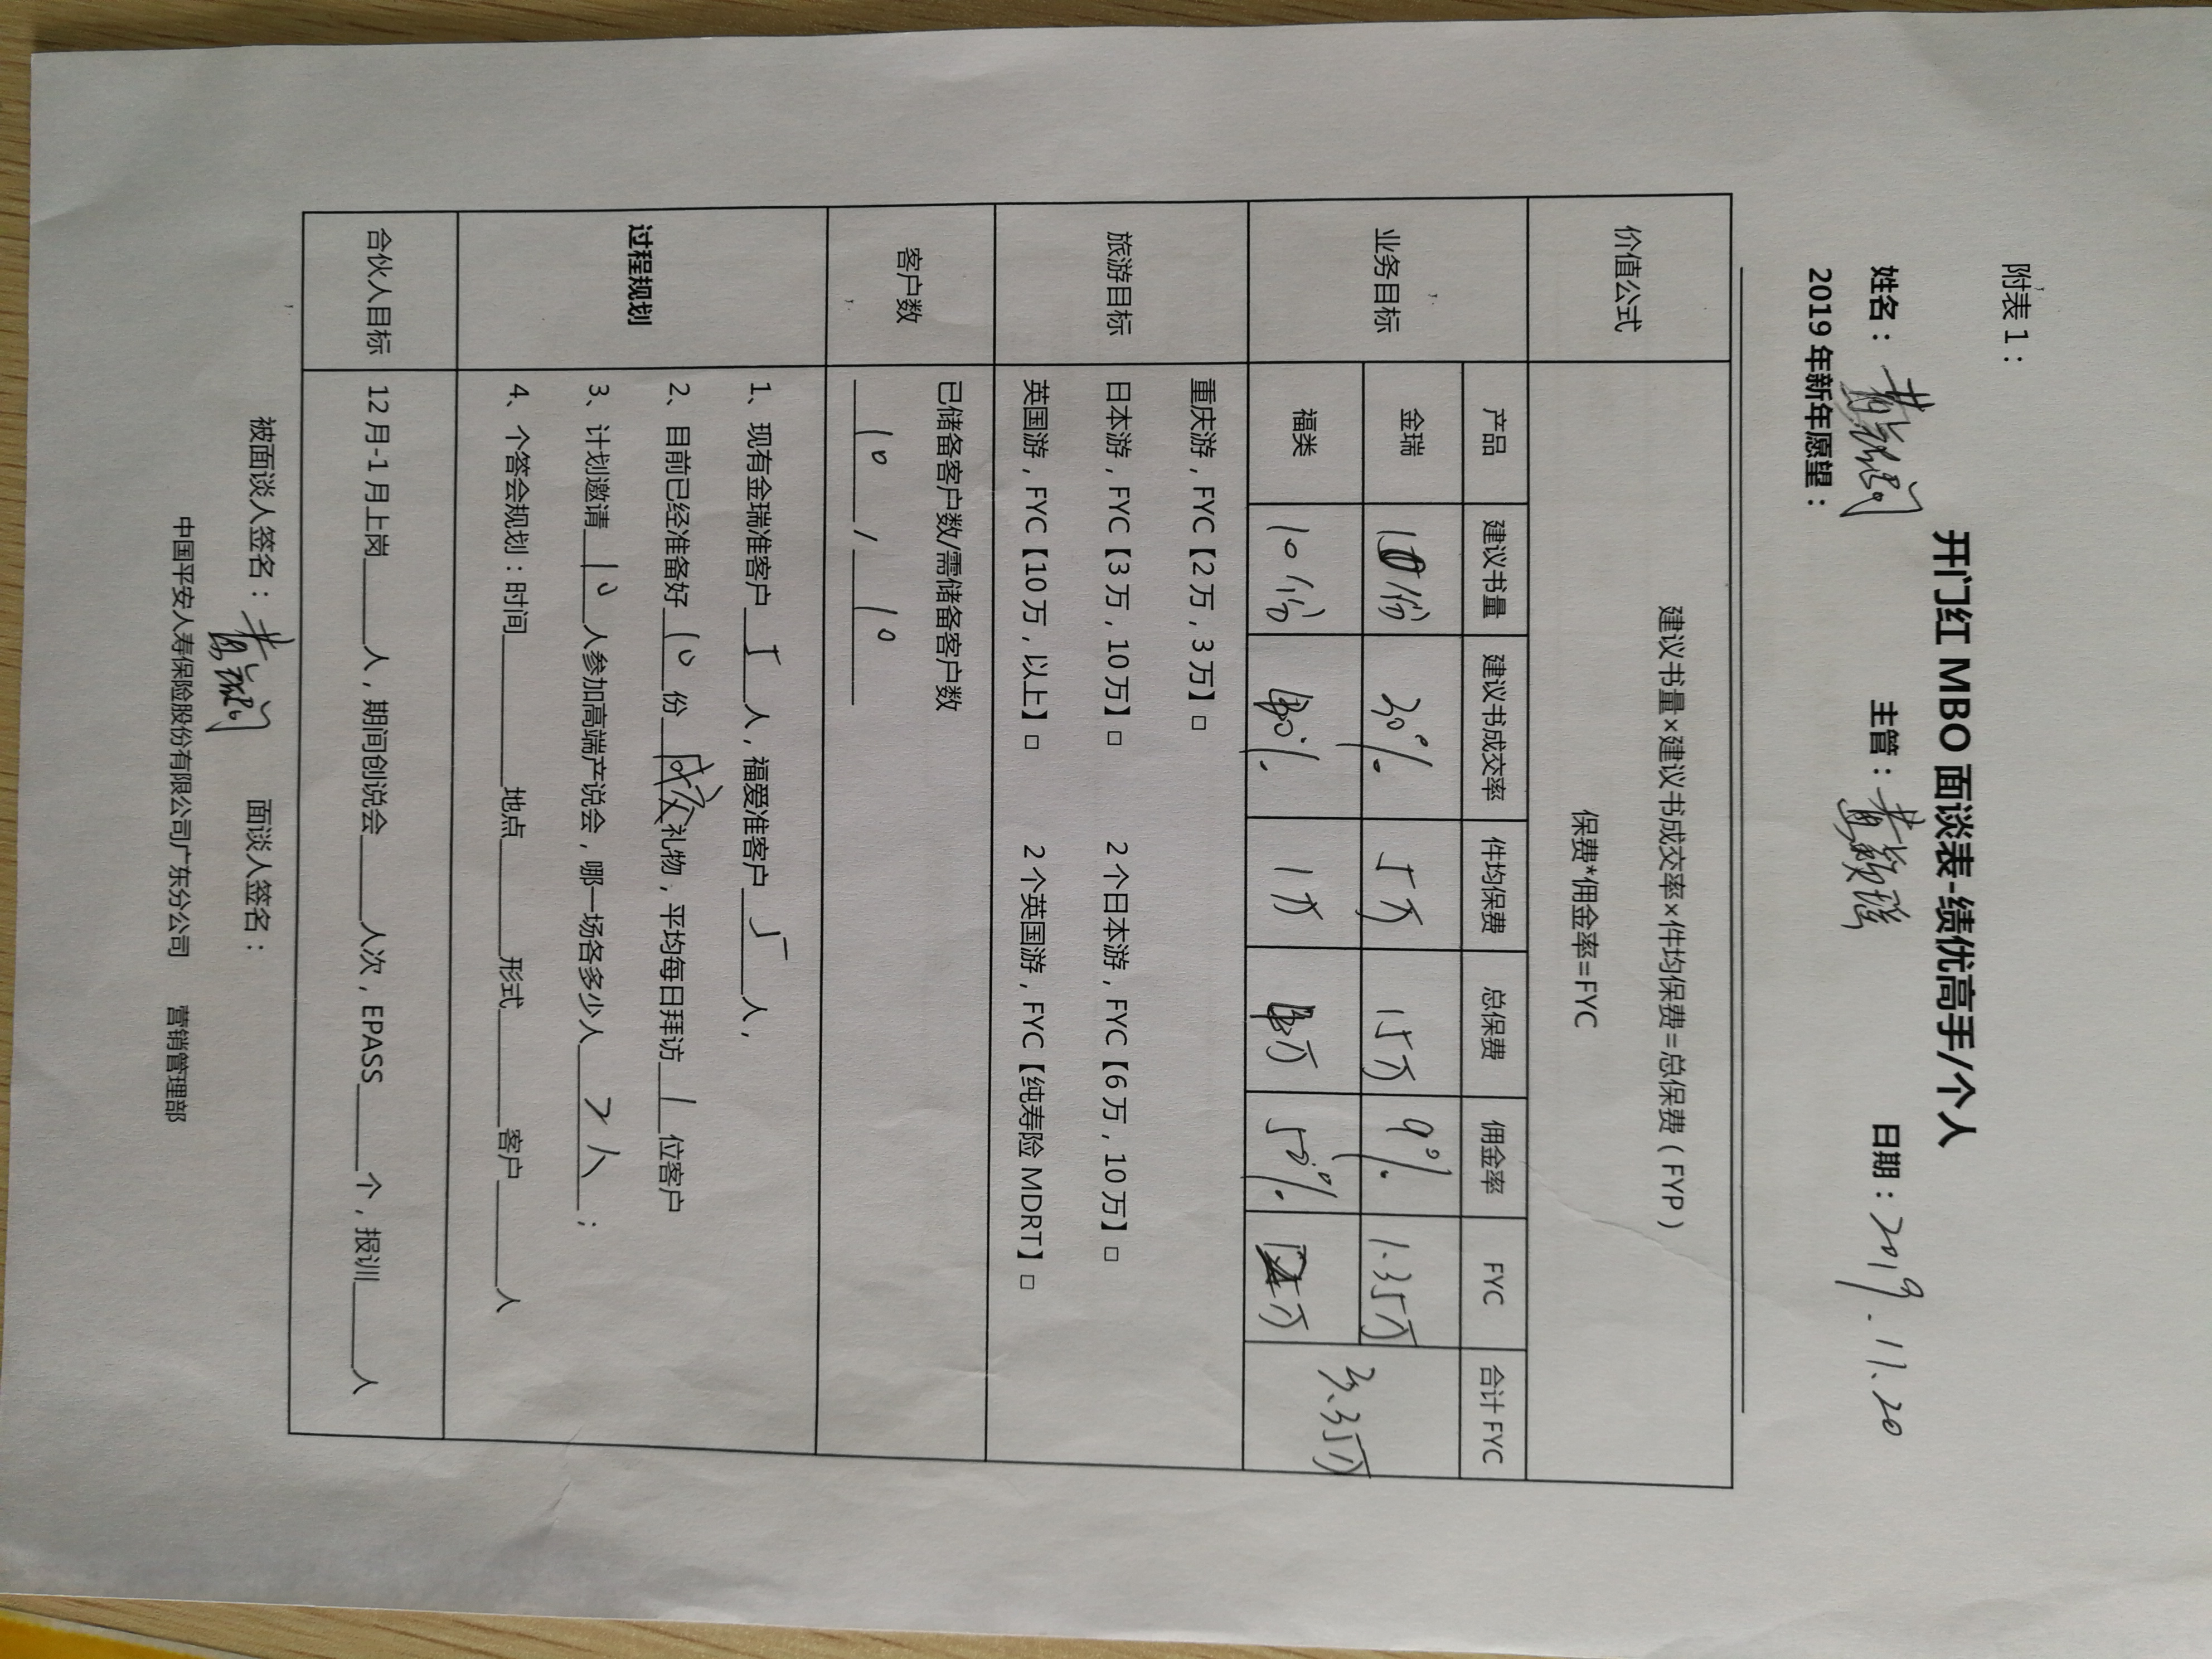 附表 1：
开门红 MBO 面谈表-绩优高手/个人
姓名： 主管：黄 日期：2019.11.20
2019 年新年愿望：
价值公式 建议书量×建议书成交率×件均保费=总保费（FYP）
保费*佣金率=FYC
业务目标
产品 建议书量 建议书成交率 件均保费 总保费 佣金率 FYC 合计 FYC
金瑞 10份 30% 5万 15万 9% 1.35万 3.35万
福类 10份 40% 1万 4万 50% 2万
旅游目标
重庆游，FYC【2 万，3 万】□
日本游，FYC【3 万，10 万】□ 2 个日本游，FYC【6 万，10 万】□
英国游，FYC【10 万，以上】□ 2 个英国游，FYC【纯寿险 MDRT】□
客户数
已储备客户数/需储备客户数
10 / 10
过程规划
1、现有金瑞准客户 5 人，福爱准客户 5 人，
2、目前已经准备好 10 份 礼物，平均每日拜访 1 位客户
3、计划邀请 10 人参加高端产说会，哪一场各多少人 2人；
4、个答会规划：时间 地点 形式 客户 人
合伙人目标 12 月-1 月上岗 人，期间创说会 人次，EPASS 个，报训 人
被面谈人签名： 面谈人签名：
中国平安人寿保险股份有限公司广东分公司 营销管理部